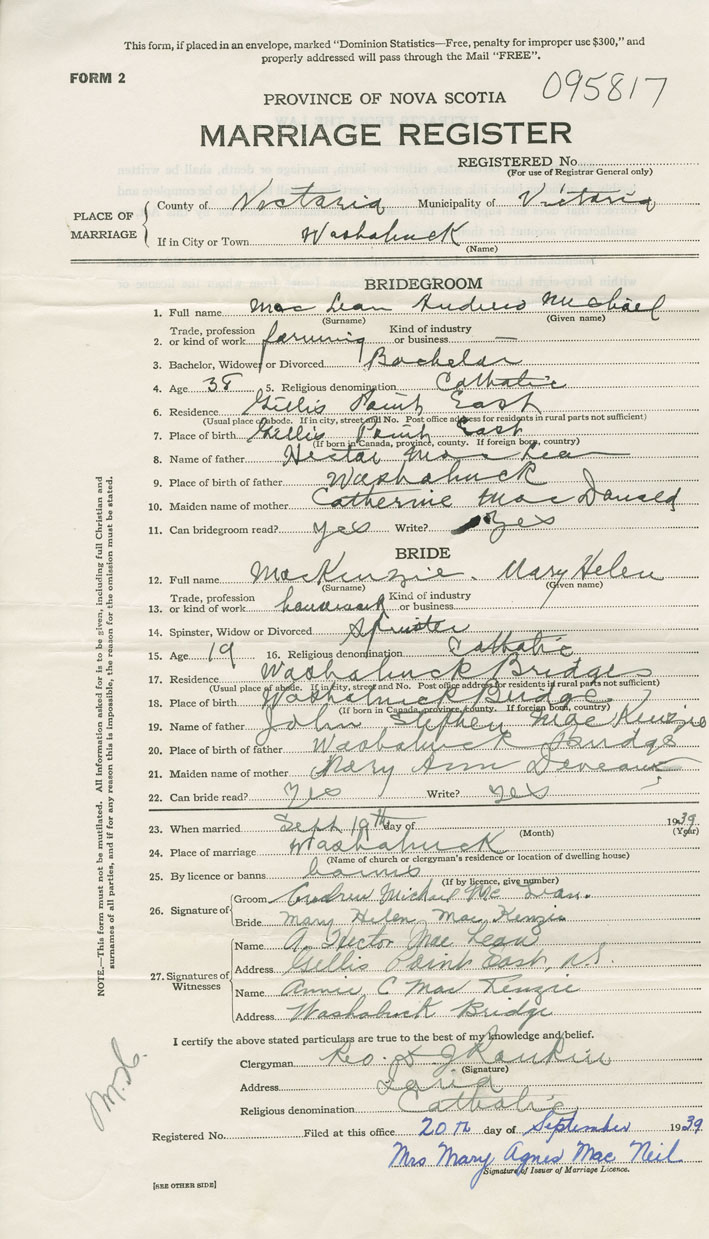 This form, if placed in an envelope, marked "Dominion Statistics—Free, penalty for improper use $300," and
properly addressed will pass through the Mail "FREE".
FORM 2
095817
PROVINCE OF NOVA SCOTIA
MARRIAGE REGISTER
REGISTERED No.
(For use of Registrar General only)
PLACE OF MARRIAGE
County of Victoria Municipality of Victoria
If in City or Town Washabuck
(Name)
BRIDEGROOM
1. Full name Mac Lean Andrew Michael
(Surname) (Given name)
2. Trade, profession or kind of work farming Kind of industry or business —
3. Bachelor, Widower or Divorced Bachelor
4. Age 38 5. Religious denomination Catholic
6. Residence Gillis Point East
(Usual place of abode. If in city, street and No. Post office address for residents in rural parts not sufficient)
7. Place of birth Gillis Point East
(If born in Canada, province, county. If foreign born, country)
8. Name of father Hector Mac Lean
9. Place of birth of father Washabuck
10. Maiden name of mother Catherine Mac Donald
11. Can bridegroom read? yes Write? yes
BRIDE
12. Full name MacKenzie. Mary Helen
(Surname) (Given name)
13. Trade, profession or kind of work housework Kind of industry or business
14. Spinster, Widow or Divorced Spinster
15. Age 19 16. Religious denomination Catholic
17. Residence Washabuck Bridge
(Usual place of abode. If in city, street and No. Post office address for residents in rural parts not sufficient)
18. Place of birth Washabuck Bridge.
(If born in Canada, province, county. If foreign born, country)
19. Name of father John Stephen MacKenzie
20. Place of birth of father Washabuck Bridge
21. Maiden name of mother Mary Ann Deveaux
22. Can bride read? Yes Write? yes
23. When married Sept 19th day of 1939
(Month) (Year)
24. Place of marriage Washabuck
(Name of church or clergyman's residence or location of dwelling house)
25. By licence or banns banns
(If by licence, give number)
26. Signature of
Groom Andrew Michael Mc Lean.
Bride Mary Helen Mac Kenzie
27. Signatures of Witnesses
Name A. Hector Mac Lean
Address Gillis Point East, N.S.
Name Annie C Mac Kenzie
Address Washabuck Bridge
I certify the above stated particulars are true to the best of my knowledge and belief.
Clergyman Rankin
(Signature)
Address Iona
Religious denomination Catholic
Registered No. Filed at this office 20th day of September 1939
Mrs Mary Agnes Mac Neil
Signature of Issuer of Marriage Licence.
[SEE OTHER SIDE]
NOTE.—This form must not be mutilated. All Information asked for is to be given, including full Christian and
surnames of all parties, and if for any reason this is impossible, the reason for the omission must be stated.